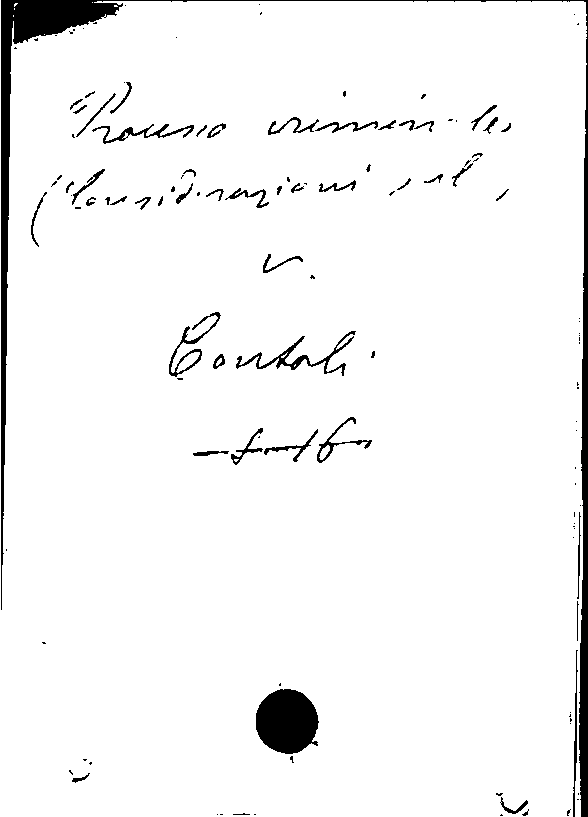 Processo criminale
(Considerazioni sul)
v.
Contoli